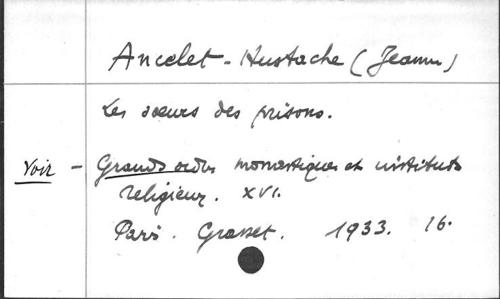 Ancelet-Hustache (Jeanne)
Les sœurs des prisons.
Voir - Grands ordres monastiques et instituts
religieux. XVI.
Paris. Grasset. 1933. 16.